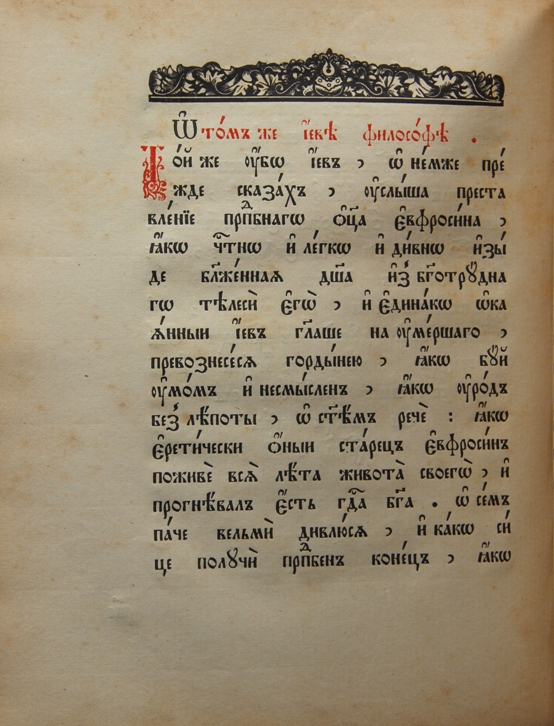 Ѿ то́мъ же і҆́евѣ філосо́фѣ .
То́й же ᲂу҆́бѡ і҆́евъ , ѡ҆ не́мже пре́
жде сказа́хъ , ᲂу҆слы́ша преста
вле́нїе прпⷣбнагѡ ѻ҆ц҃а̀ є҆ѵфроси́на ,
ꙗ҆́кѡ чⷭ҇тнѡ и҆ ле́гкѡ и҆ ди́внѡ и҆зы́
де бл҃же́ннаѧ дш҃а и҆з̾ бг҃отрꙋ́дна
гѡ тѣ́лесѝ є҆гѡ̀ , и҆ є҆дина́кѡ ѡ҆ка
ѧ́нныи і҆́евъ гл҃аше на ᲂу҆ме́ршаго ,
превознесе́сѧ горды́нею , ꙗ҆́кѡ бꙋ́й
ᲂу҆мо́мъ и҆ несмы́сленъ , ꙗ҆́кѡ ᲂу҆ро́дъ
без̾ лѣ́поты , ѡ҆ ст҃ѣ́мъ речѐ : ꙗ҆́кѡ
є҆рети́чески ѻ҆́ныи ста́рецъ є҆ѵфроси́нъ
поживѐ всѧ̀ лѣ́та живота̀ своегѡ̀ , и҆
прогнѣ́валъ є҆́сть гдⷭ҇а бг҃а . ѡ҆ се́мъ
па́че вельмѝ дивлю́сѧ , и҆ ка́кѡ си́
це полꙋчѝ прпⷣбенъ коне́цъ , ꙗ҆́кѡ